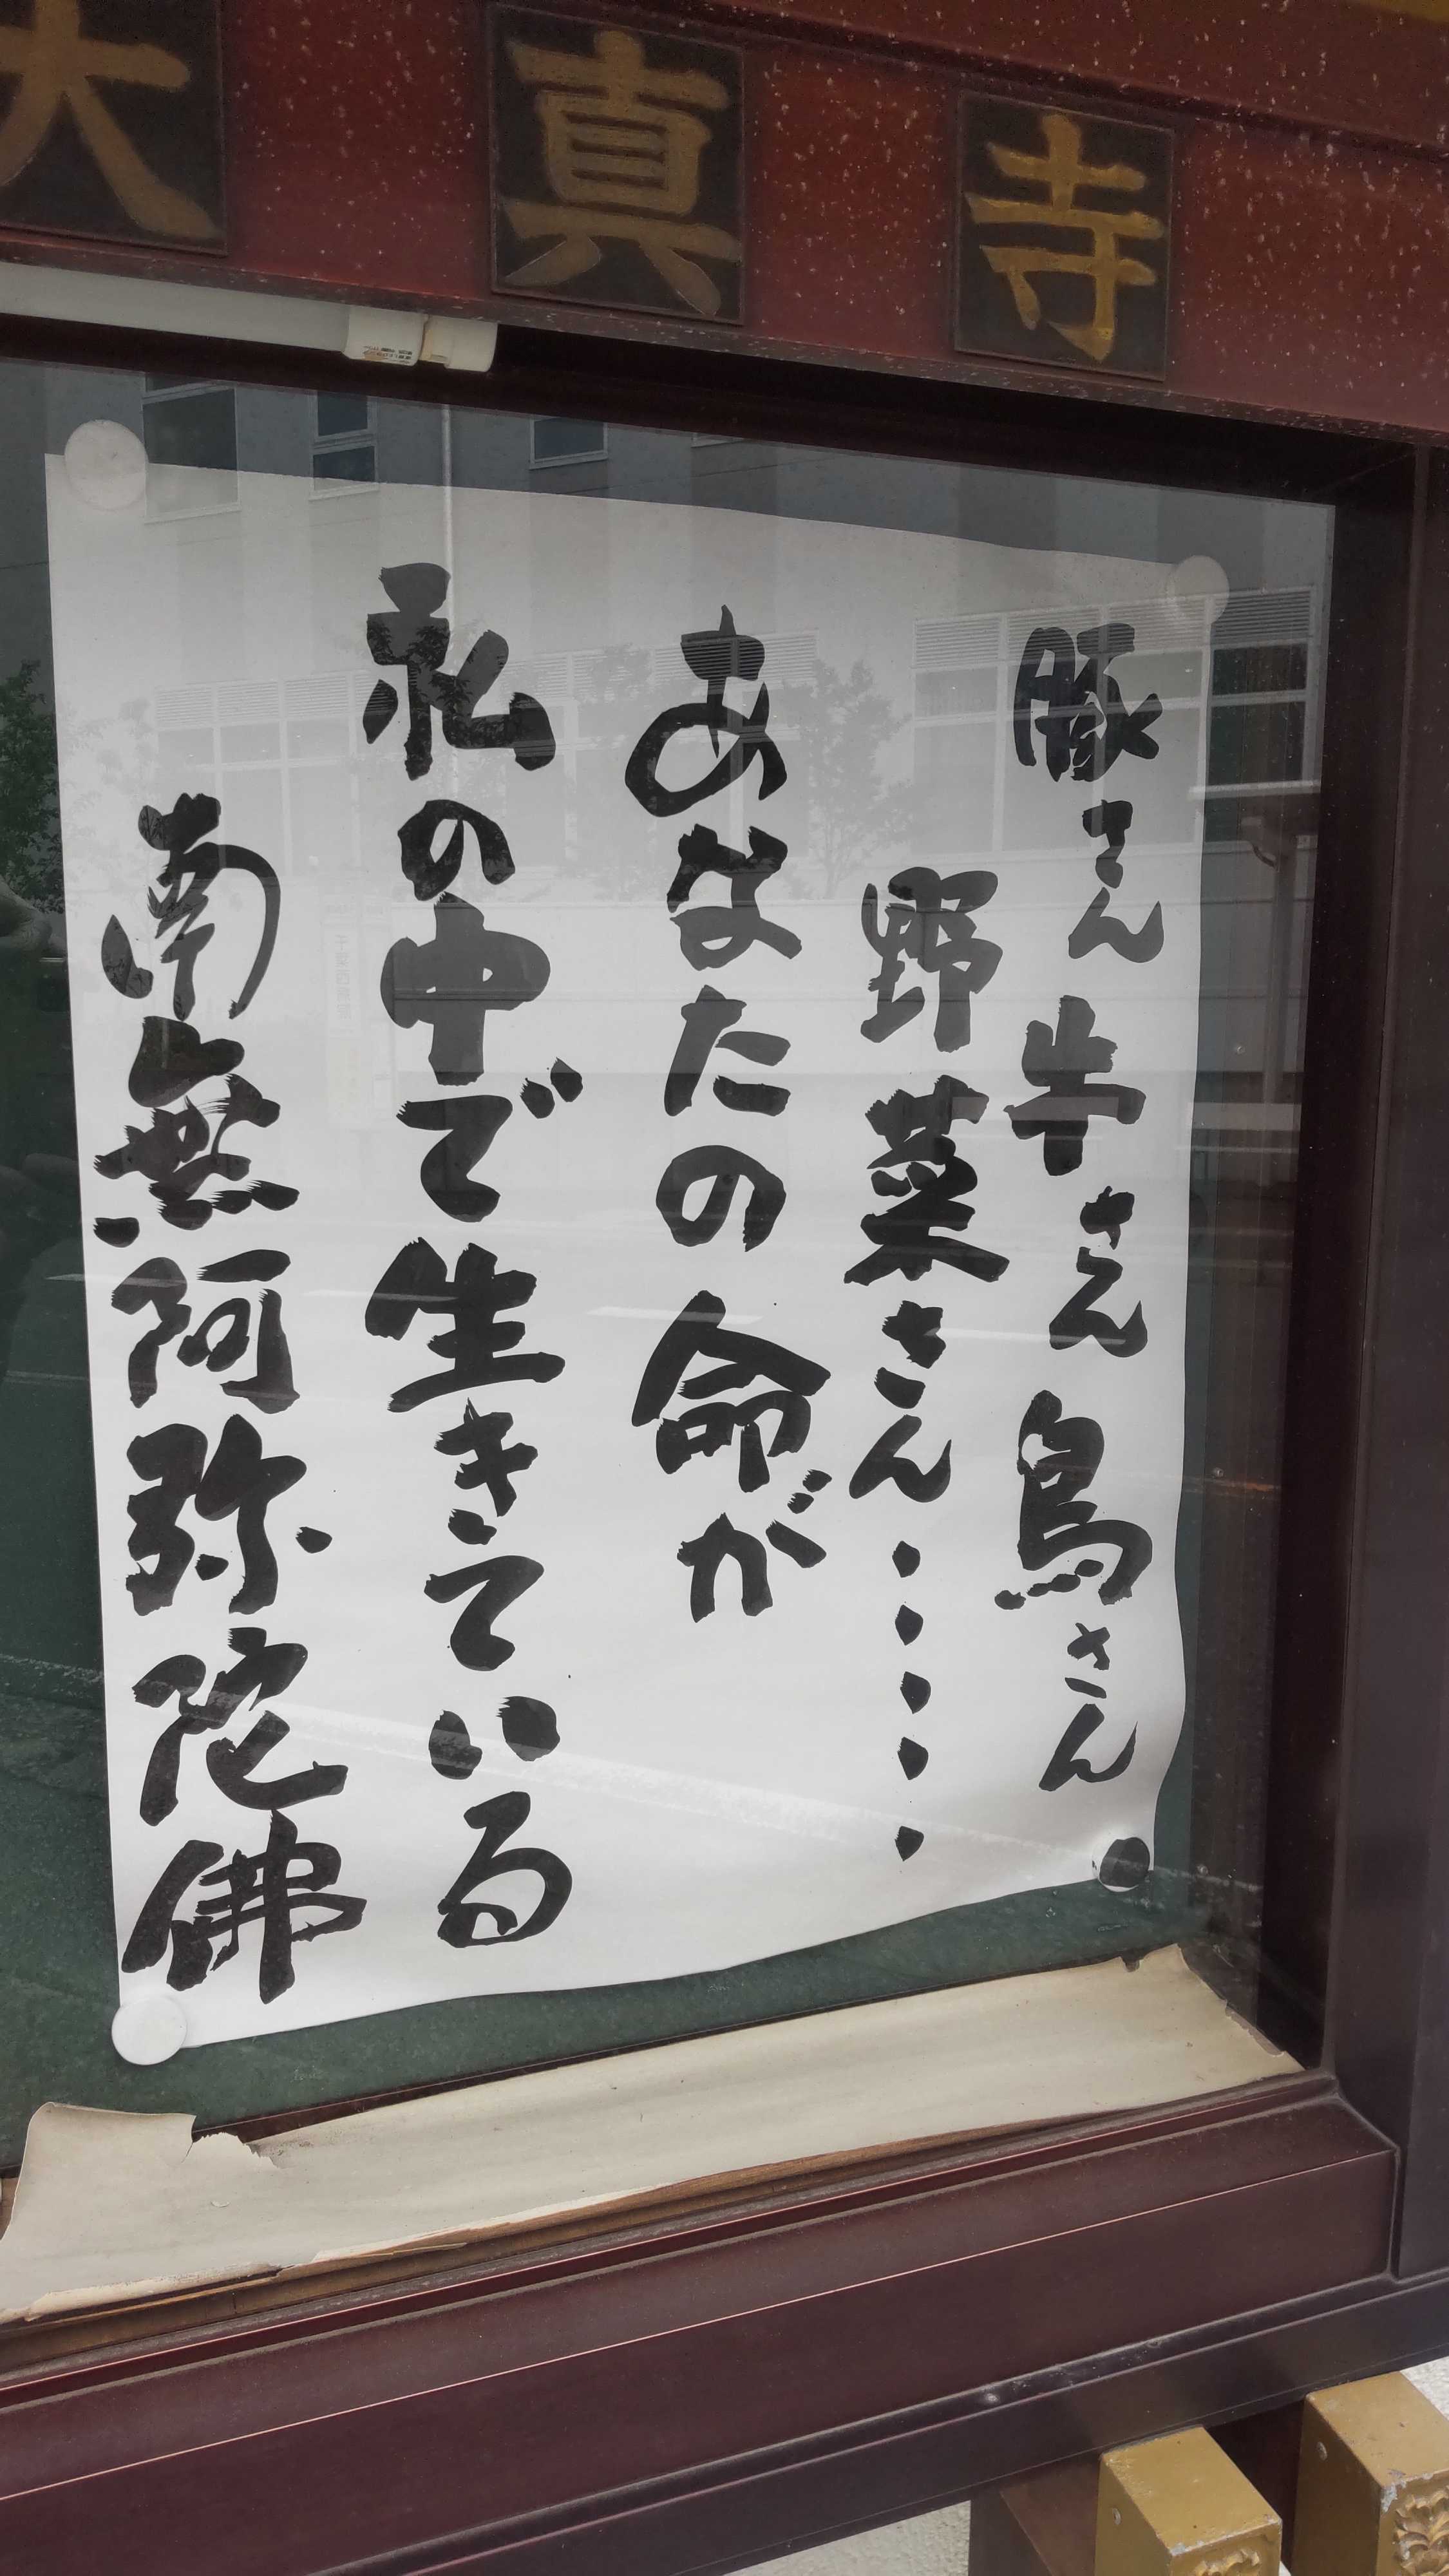 大真寺
豚さん 牛さん 鳥さん
野菜さん・・・・・
あなたの命が
私の中で生きている
南無阿弥陀佛